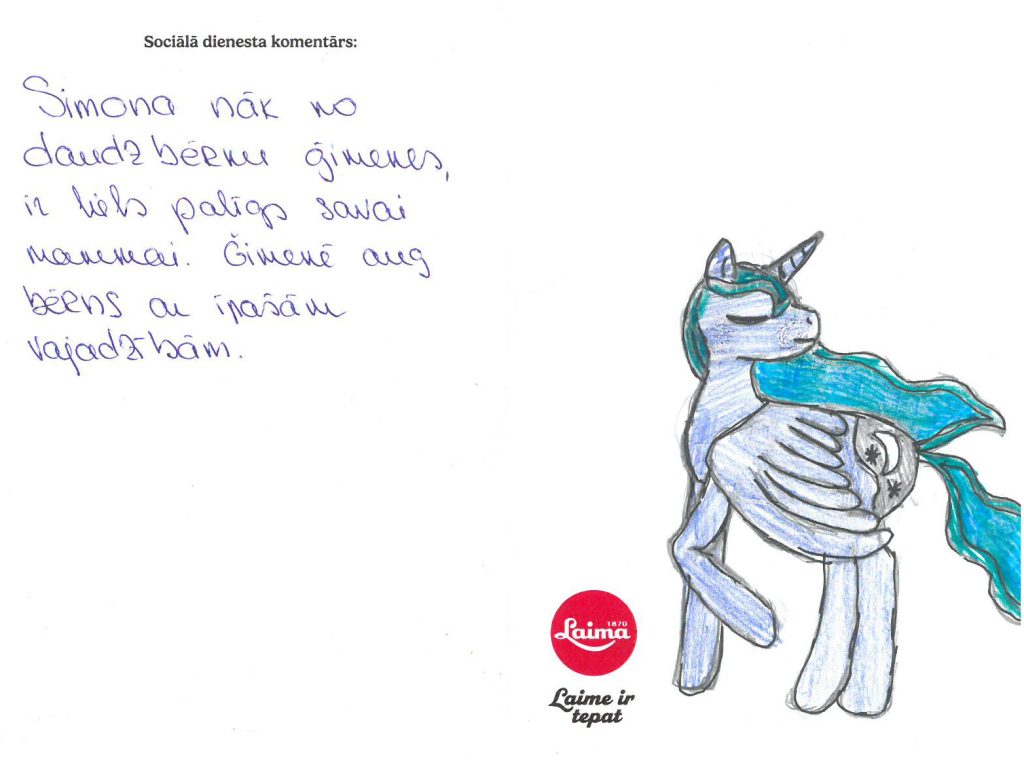 Sociālā dienesta komentārs:
Simona nāk no
daudzbērnu ģimenes,
ir liels palīgs savai
mammai. Ģimenē aug
bērns ar īpašām
vajadzībām.
1870
Laima
Laime ir
tepat